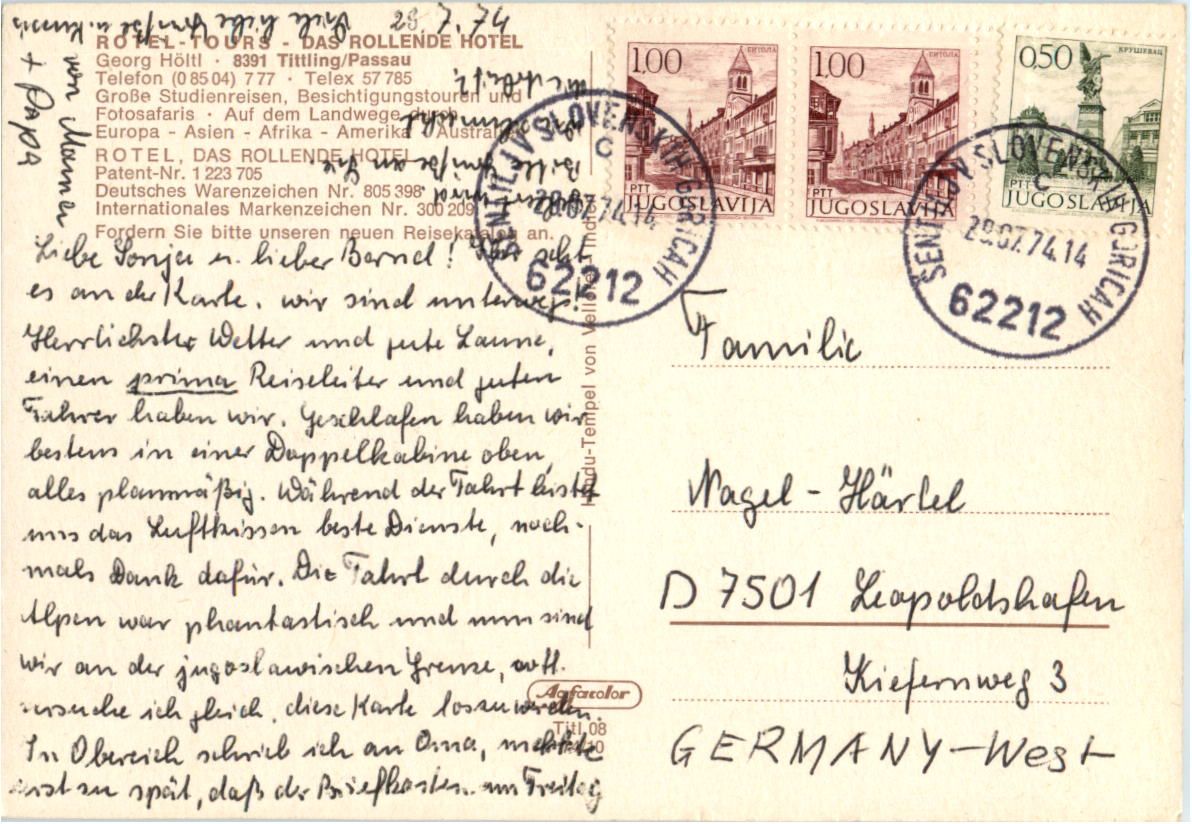 28.7.74
ROTEL-TOURS - DAS ROLLENDE HOTEL
Georg Höltl · 8391 Tittling/Passau
Telefon (0 85 04) 7 77 · Telex 57 785
Große Studienreisen, Besichtigungstouren und
Fotosafaris · Auf dem Landwege durch
Europa - Asien - Afrika - Amerika - Australien
ROTEL, DAS ROLLENDE HOTEL
Patent-Nr. 1 223 705
Deutsches Warenzeichen Nr. 805 398
Internationales Markenzeichen Nr. 300 209
Fordern Sie bitte unseren neuen Reisekatalog an.
Liebe Sonja u. lieber Bernd! Ihr seht
es an der Karte, wir sind unterwegs.
Herrlichstes Wetter und gute Laune,
einen prima Reiseleiter und guten
Fahrer haben wir. Geschlafen haben wir
bestens in einer Doppelkabine oben,
alles planmäßig. Während der Fahrt leistet
uns das Luftkissen beste Dienste, noch-
mals Dank dafür. Die Fahrt durch die
Alpen war phantastisch und nun sind
wir an der jugoslawischen Grenze, evtl.
versuche ich gleich, diese Karte loszuwerden.
In Obereich schrieb ich an Oma, merkte
erst zu spät, daß der Briefkasten am Freitag
geleert wird.
Bitte Grüße an Sie
Viele liebe Grüße u. Kuss
von Mamen
+ Papa
Hindu-Tempel von Vellore, Indien
Agfacolor
Titl 08
1.00
БИТОЛА
PTT
JUGOSLAVIJA
1.00
БИТОЛА
PTT
JUGOSLAVIJA
0.50
КРУШЕВАЦ
PTT
JUGOSLAVIJA
SENTILJ V SLOVENSKIH GORICAH
C
29.07.74.14
62212
SENTILJ V SLOVENSKIH GORICAH
C
29.07.74.14
62212
Familie
Nagel - Härtel
D 7501 Leopoldshafen
Kiefernweg 3
GERMANY-West